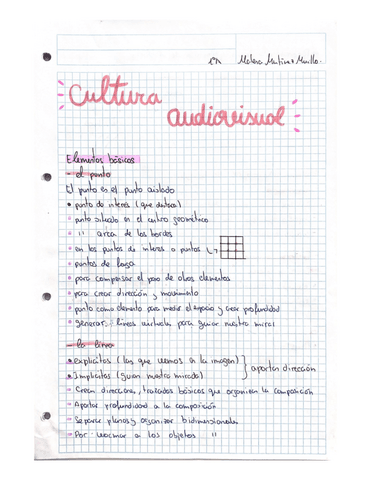 Cultura
audiovisual
Elementos básicos
- el punto
El punto es el punto aislado
• punto de interés (que destaca)
• punto situado en el centro geométrico
• " cerca de los bordes
• en los puntos de interes o puntos
• puntos de fuga
• para compensar el peso de otros elementos
• para crear dirección y movimiento
• punto como elemento para medir el espacio y crear profundidad
• generar líneas virtuales para guiar nuestra mirada
- la línea
• explícitas (las que vemos en la imagen)
• Implícitas (guían nuestra mirada) } aportan dirección
- Crean direcciones, trazados básicos que organizan la composición
- Aportar profundidad a la composición
- Separar planos y organizar bidimensionales
- Por a los objetos "